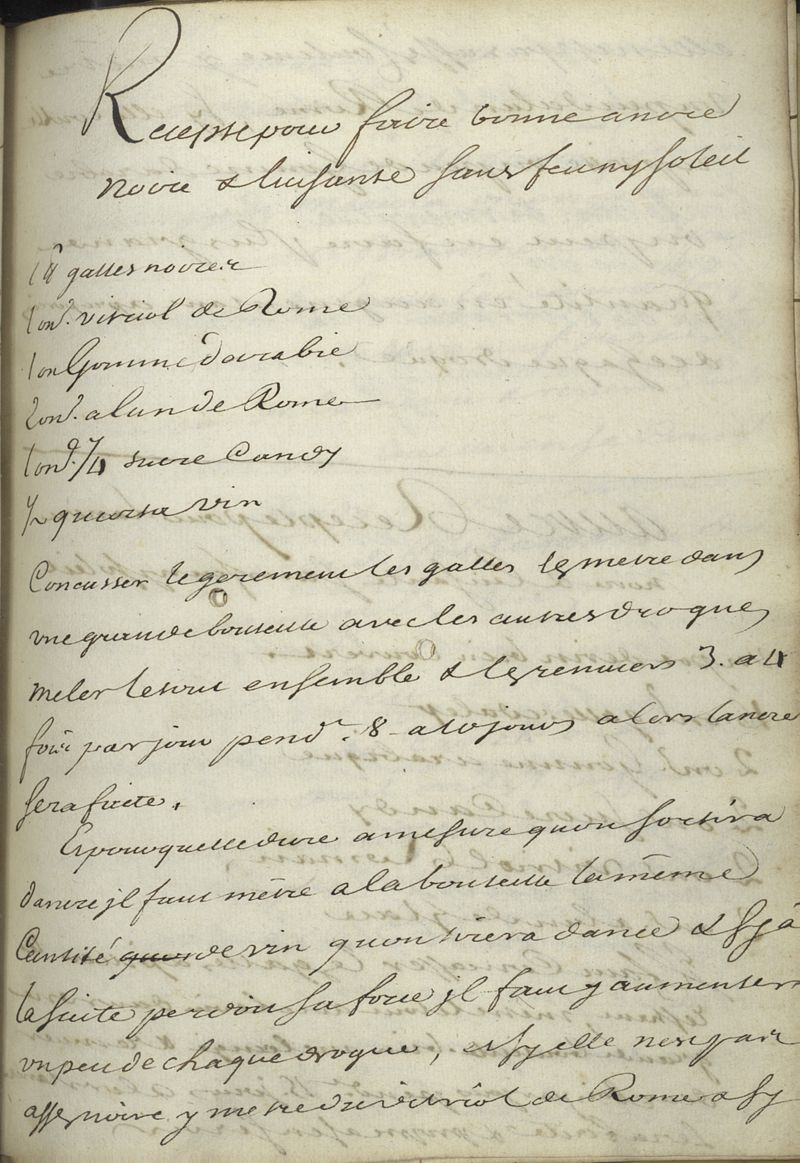 Recepte pour faire bonne ancre
noire & luisante sans feu ny soleil
1 ℔ galles noires
1 on.ᵉ vitriol de Rome
1 on Gomme d'arabie
2 on.ᵉ alun de Rome
1 on.ᵉ ¼ sucre Candy
½ quarte vin
Concasser legerement les galles les metre dans
une grande bouteille avec les autres drogues
meler le tout ensemble & les remuers 3. a 4
fois par jour pend.ᵗ 8 a 10 jours alors lancre
sera faite.
Et pour quelle dure a mesure quon sortira
dancre jl faut mêtre a la bouteille la même
Cantité de vin quon tirera dance & sy à
la suite perdoit sa force jl faut y aumenter
un peu de chaque drogue, et sy elle nest pas
assez noire y metre du vitriol de Rome & sy